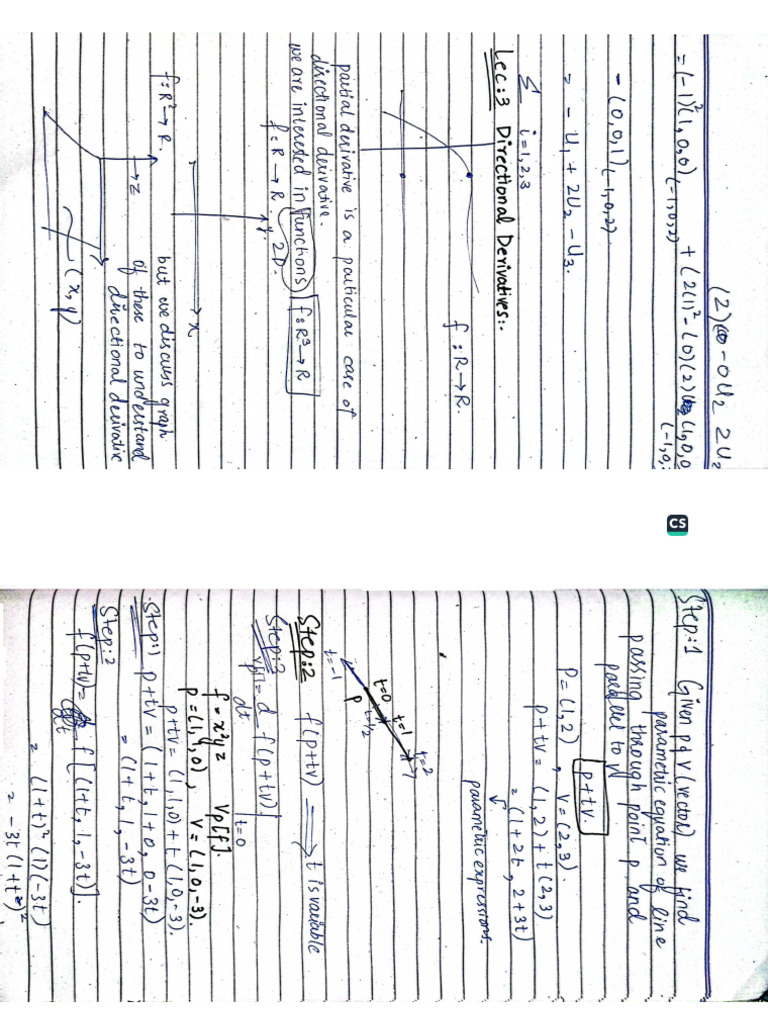 (2) - 0U2 2U2
= (-1)²(1,0,0)(-1,0,2) + (2(1)² - (0)(2) (1,0,0
(-1,0,
- (0,0,1)(-1,0,2).
= - U1 + 2U2 - U3.
Σ i=1,2,3
Lec:3 Directional Derivatives:-
f : R→R.
partial derivative is a particular case of
directional derivative.
we are interested in functions f: R³→R
f: R → R y 2D.
x
f: R²→ R. but we discuss graph
z of these to understand
directional derivative
(x, y)
CS
Step:1 Given p & v (vector) we find
parametric equation of line
passing through point p and
parallel to v
p+tv
P = (1,2) , v = (2,3).
p+tv = (1,2) + t(2,3)
= (1+2t, 2+3t)
parametric expressions.
t=2
t=1
t=0 t=1/2
P
t=-1
Step:2 f(p+tv) ⟹ t is variable
Step:3
Vp[f] = d f(p+tv)|
dt t=0
f = x²yz Vp[f].
p = (1,1,0) , v = (1,0,-3).
p+tv = (1,1,0) + t(1,0,-3).
Step:1 p+tv = (1+t, 1+0, 0-3t)
= (1+t, 1, -3t)
Step:2
f(p+tv) = f[(1+t, 1, -3t)].
= (1+t)² (1)(-3t)
= -3t(1+t)²